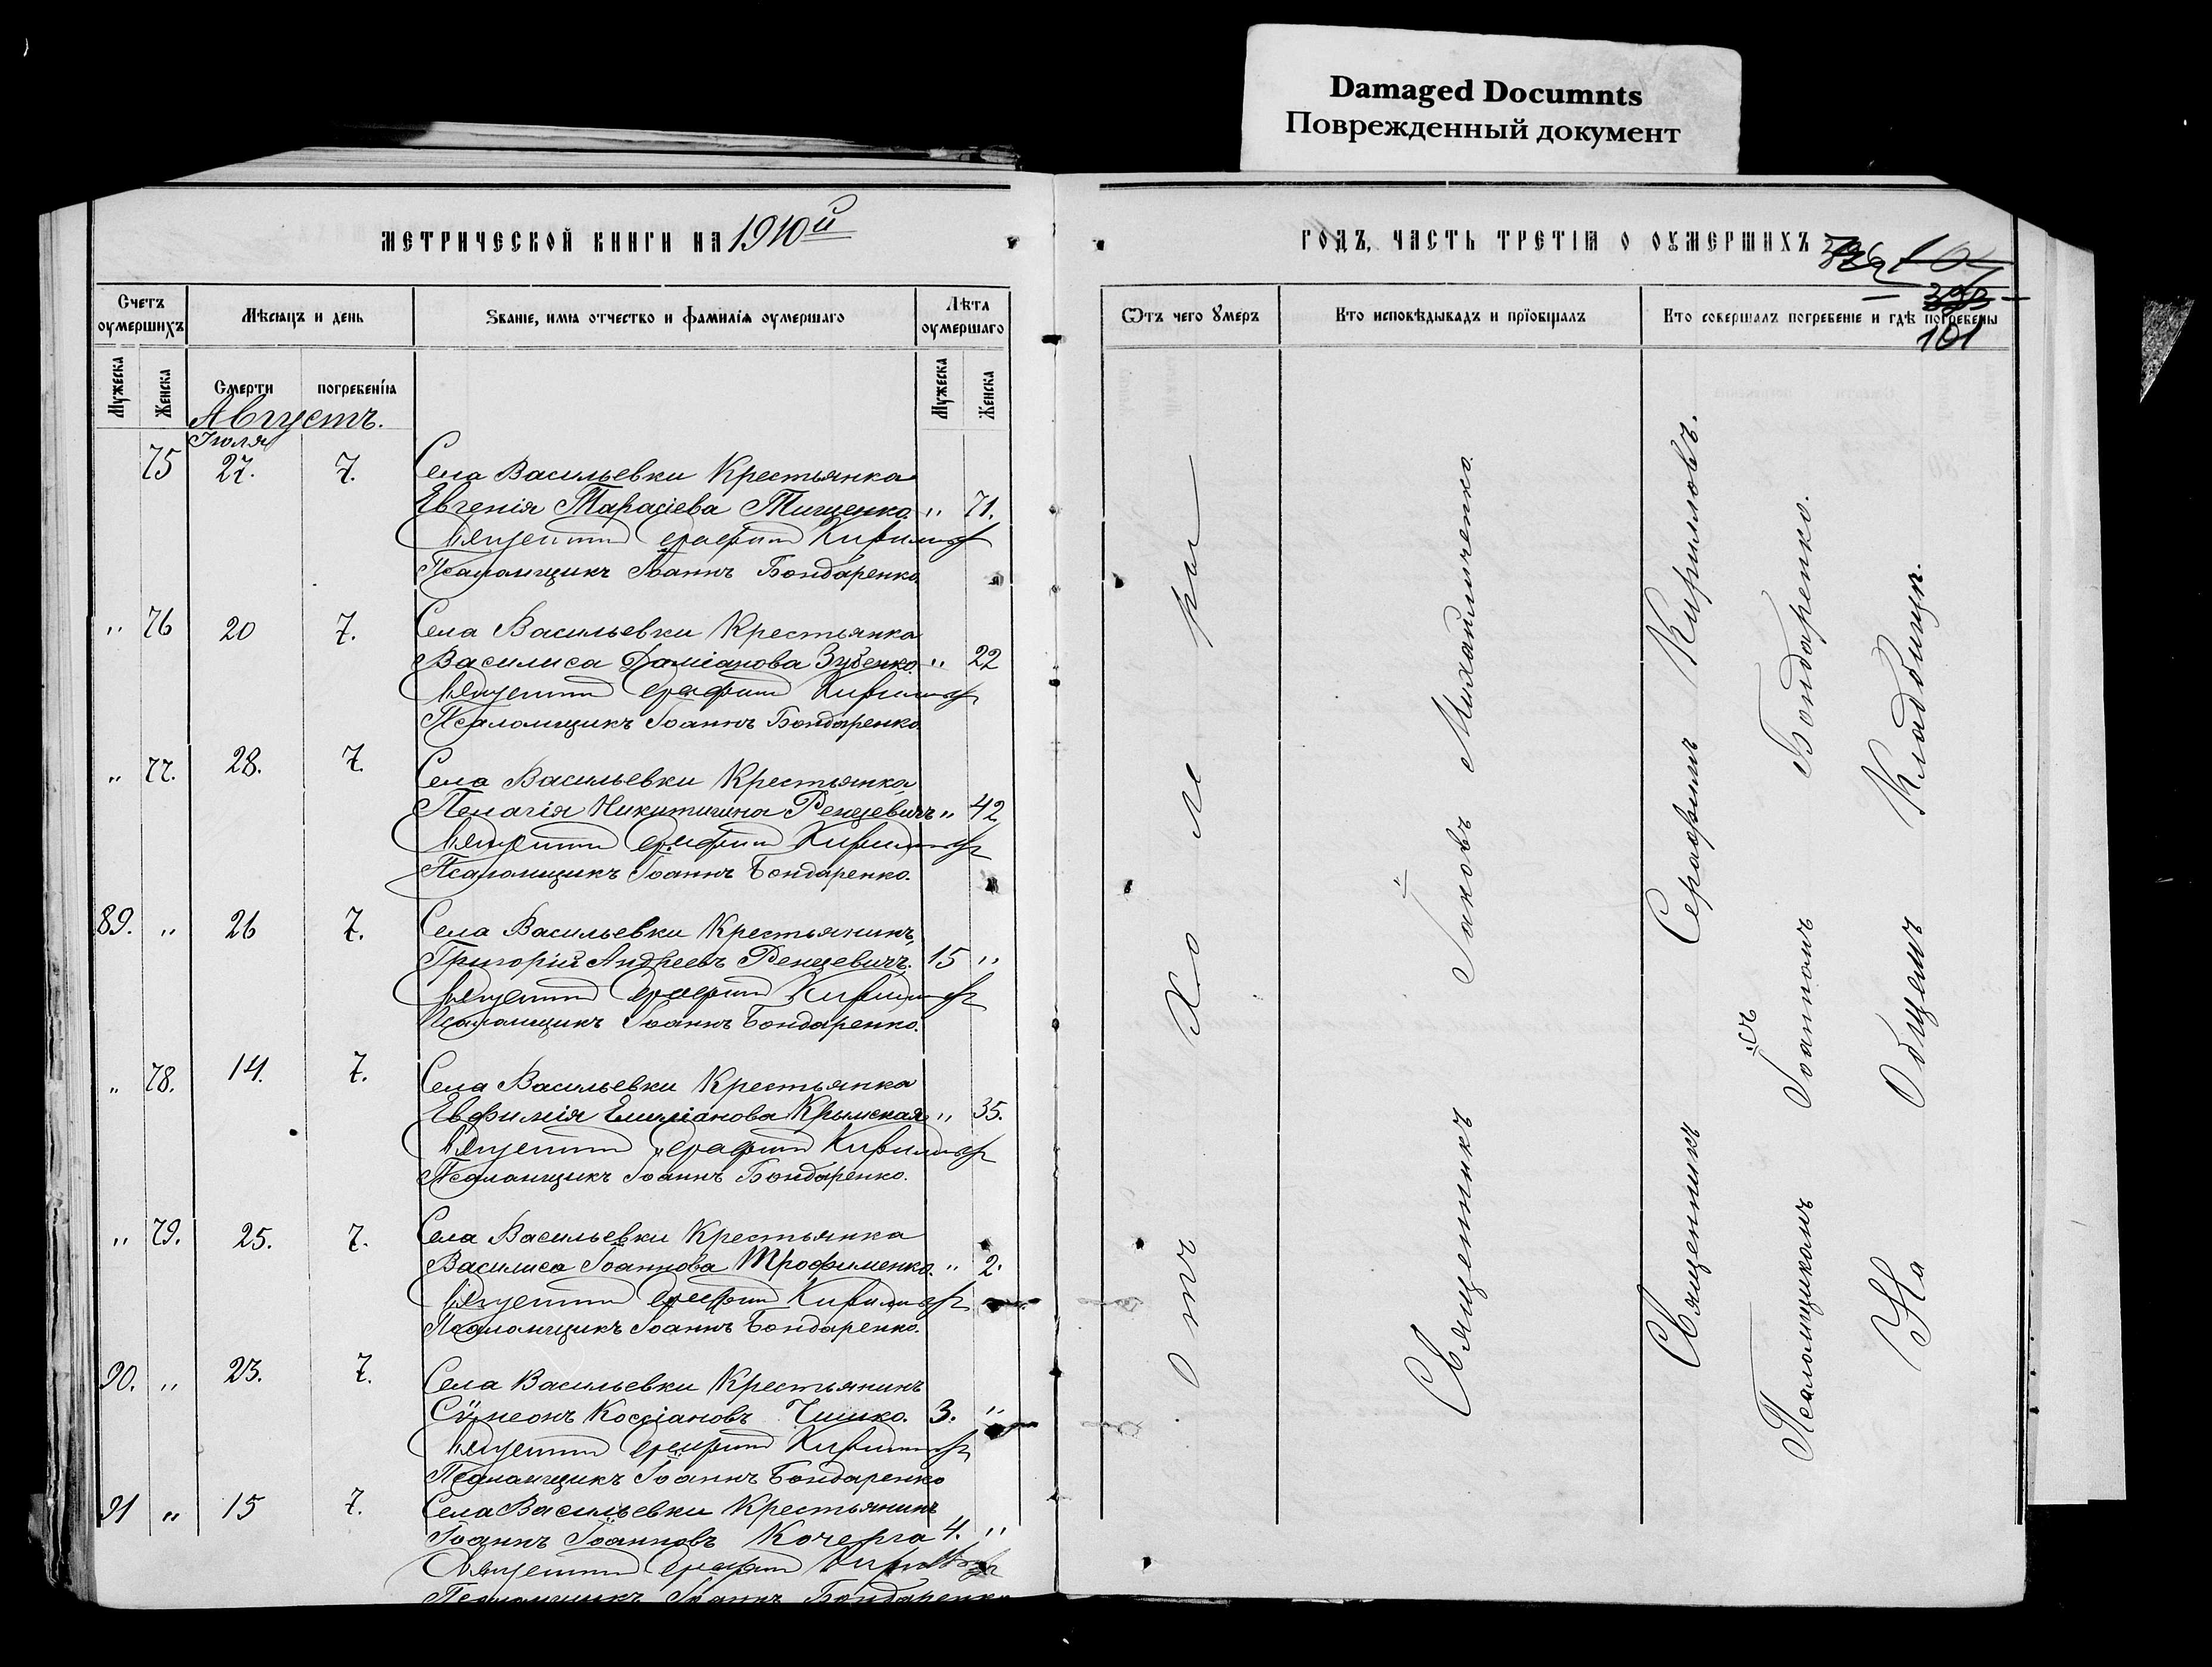 Damaged Documnts
Поврежденный документ
МЕТРИЧЕСКОЙ КНИГИ НА 1910й
Счетъ оумершихъ
Мѣсяцъ и день
Званіе, имя отчество и фамилія оумершаго
Лѣта оумершаго
Мужеска
Женска
Смерти
погребенїя
Мужеска
Женска
Августъ.
Іюля
75 27. 7. Села Васильевки Крестьянка
Евгенія Тарасіева Тищенко. " 71.
Священникъ Серафимъ Кирилловъ
Псаломщикъ Іоаннъ Бондаренко.
" 76 20 7. Села Васильевки Крестьянка
Василиса Даміанова Зубенко. " 22
Священникъ Серафимъ Кирилловъ
Псаломщикъ Іоаннъ Бондаренко
" 77. 28. 7. Села Васильевки Крестьянка
Пелагія Никитична Ренцевичъ " 42
Священникъ Серафимъ Кирилловъ
Псаломщикъ Іоаннъ Бондаренко.
89. " 26 7. Села Васильевки Крестьянинъ,
Григорій Андреевъ Ренцевичъ. 15 "
Священникъ Серафимъ Кирилловъ
Псаломщикъ Іоаннъ Бондаренко.
" 78. 14. 7. Села Васильевки Крестьянка
Евфимія Емиліанова Крымская " 35.
Священникъ Серафимъ Кирилловъ
Псаломщикъ Іоаннъ Бондаренко.
" 79. 25. 7. Села Васильевки Крестьянка
Василиса Іоаннова Трофименко. " 2.
Священникъ Серафимъ Кирилловъ
Псаломщикъ Іоаннъ Бондаренко.
90. " 23. 7. Села Васильевки Крестьянинъ
Сѵмеонъ Кассіановъ Чишко. 3. "
Священникъ Серафимъ Кирилловъ
Псаломщикъ Іоаннъ Бондаренко
91 " 15 7. Села Васильевки Крестьянинъ
Іоаннъ Іоанновъ Кочерга 4. "
Священникъ Серафимъ Кирилловъ
Псаломщикъ Іоаннъ Бондаренко
ГОДЪ, ЧАСТЬ ТРЕТІЯ О ОУМЕРШИХЪ
101
Ѿтъ чего ѹмеръ
Кто исповѣдывалъ и прїобщалъ
Кто совершалъ погребеніе и гдѣ погребены
Отъ Холеры
Священникъ Іаковъ Михайличенко.
Священникъ Серафимъ Кирилловъ.
съ
Псаломщикомъ Іоанномъ Бондаренко.
На Общемъ Кладбищѣ.